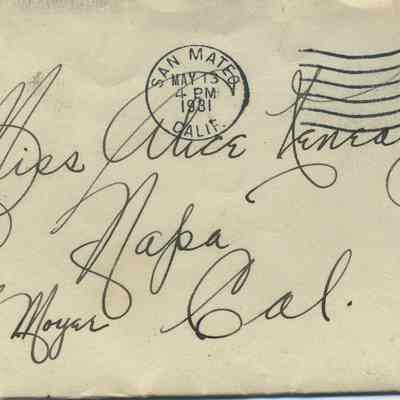 SAN MATEO
MAY 13
4 PM
1931
CALIF.
Miss Alice
Napa
Moyer Cal.